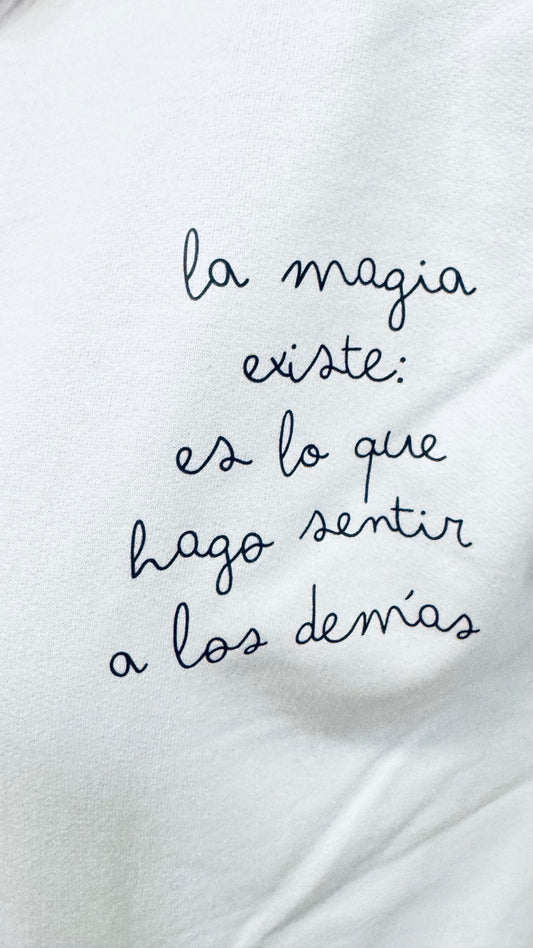 la magia
existe:
es lo que
hago sentir
a los demás